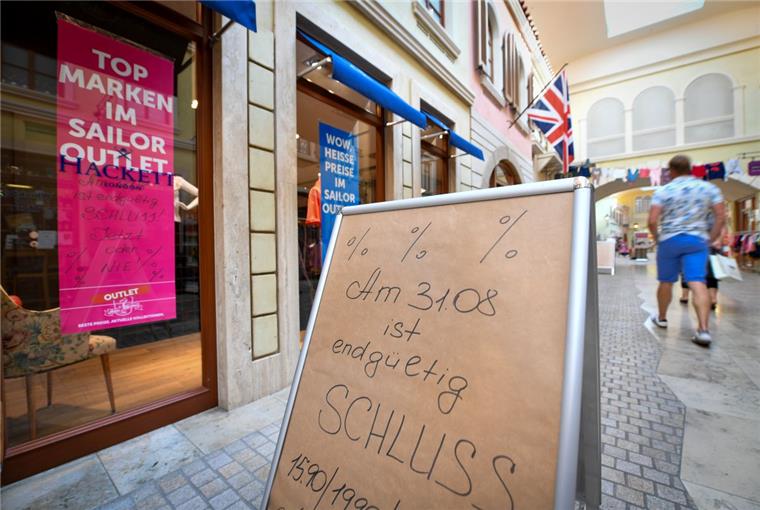 TOP
MARKEN IM
SAILOR
OUTLET
HACKETT
LONDON
Am
ist endgültig
SCHLUSS!
Jetzt
% oder %
% NIE! %
OUTLET
BESTE PREISE. AKTUELLE KOLLEKTIONEN.
WOW,
HEISSE
PREISE
IM
SAILOR
OUTLET
% % %
Am 31.08
ist
endgültig
SCHLUSS
15.90/19.90/